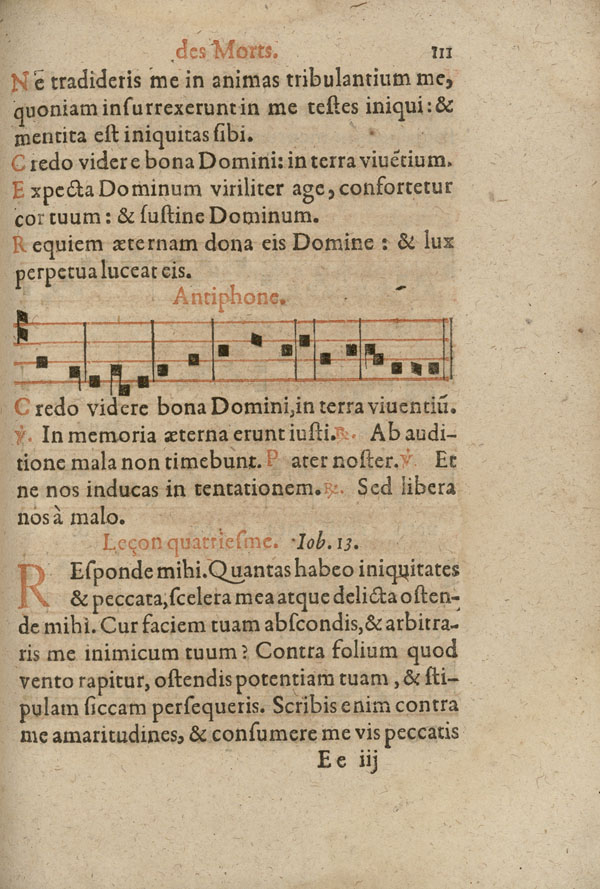 des Morts. 111
Nē tradideris me in animas tribulantium me,
quoniam inſurrexerunt in me teſtes iniqui: &
mentita eſt iniquitas ſibi.
Credo videre bona Domini: in terra viuētium.
Expecta Dominum viriliter age, confortetur
cor tuum: & ſuſtine Dominum.
Requiem æternam dona eis Domine: & lux
perpetua luceat eis.
Antiphone.
Credo videre bona Domini, in terra viuentiū.
℣. In memoria æterna erunt iuſti. ℟. Ab audi-
tione mala non timebunt. Pater noſter. ℣. Et
ne nos inducas in tentationem. ℟. Sed libera
nos à malo.
Leçon quatrieſme. Iob. 13.
REſponde mihi. Quantas habeo iniquitates
& peccata, ſcelera mea atque delicta oſten-
de mihi. Cur faciem tuam abſcondis, & arbitra-
ris me inimicum tuum? Contra folium quod
vento rapitur, oſtendis potentiam tuam, & ſti-
pulam ſiccam perſequeris. Scribis enim contra
me amaritudines, & conſumere me vis peccatis
E e iij